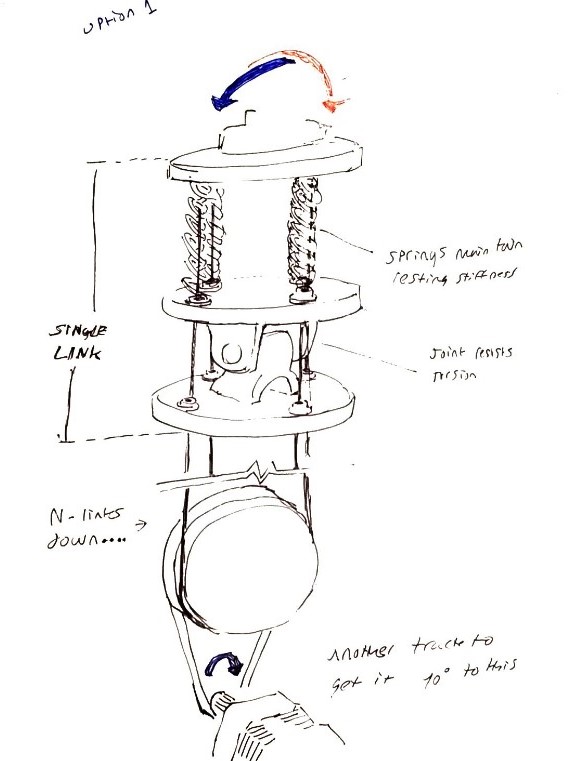 option 1
springs maintain
resting stiffness
SINGLE
LINK
Joint resists
torsion
N-links
down....
Another to
get it 90° to this